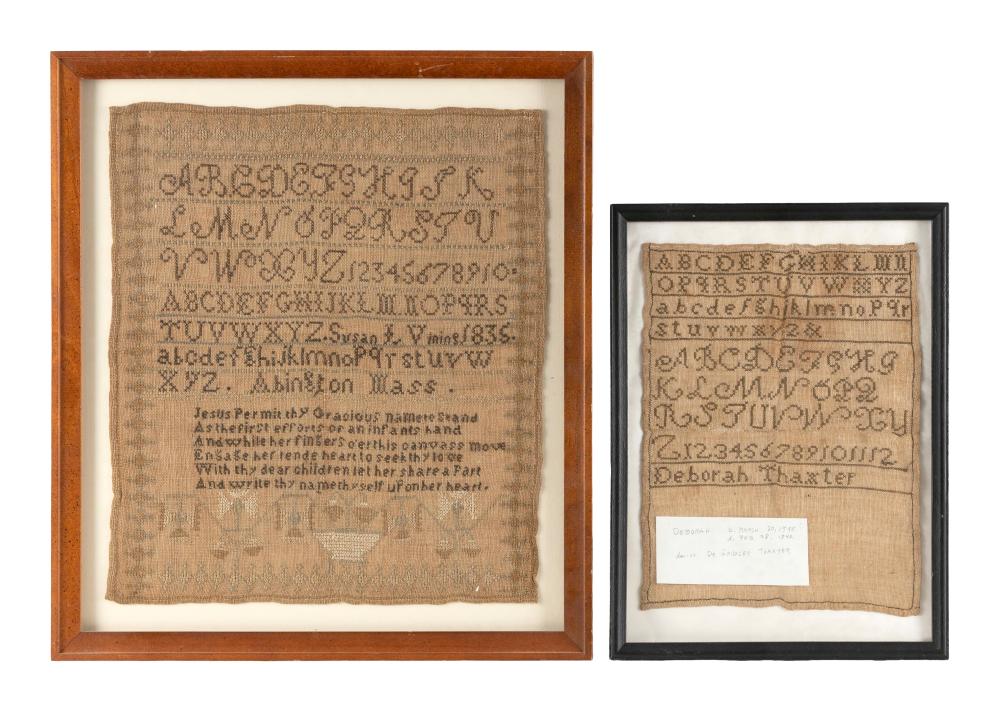 ABCDEFGHIJK
LMNOPQRSTU
VWXYZ12345678910
ABCDEFGHIJKLMNOPqRS
TUVWXYZ.Susan L Vining1835
abcdefghijklmnoPqrstuvw
XYZ. Abington Mass.
Jesus Permit thy Gracious name to Stand
As the first efforts or an infants hand
And while her fingers o'er this canvass move
Engage her tende heart to seek thy love
With thy dear children let her share a Part
And write thy name thyself upon her heart.
ABCDEFGHIKLMN
OPqRSTUVWXYZ
abcdefghijklmnoPqr
stuvwxyz&
ABCDEFGHI
KLMNOPQ
RSTUVWXY
Z123456789101112
Deborah Thaxter
DEBORAH b. MARCH 20,
d. FEB. 28,
Dr. GRIDLEY THAXTER